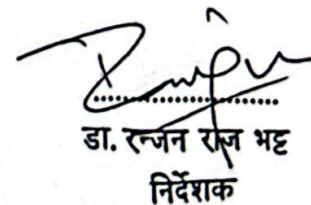 डा. रन्जन राज भट्ट
निर्देशक